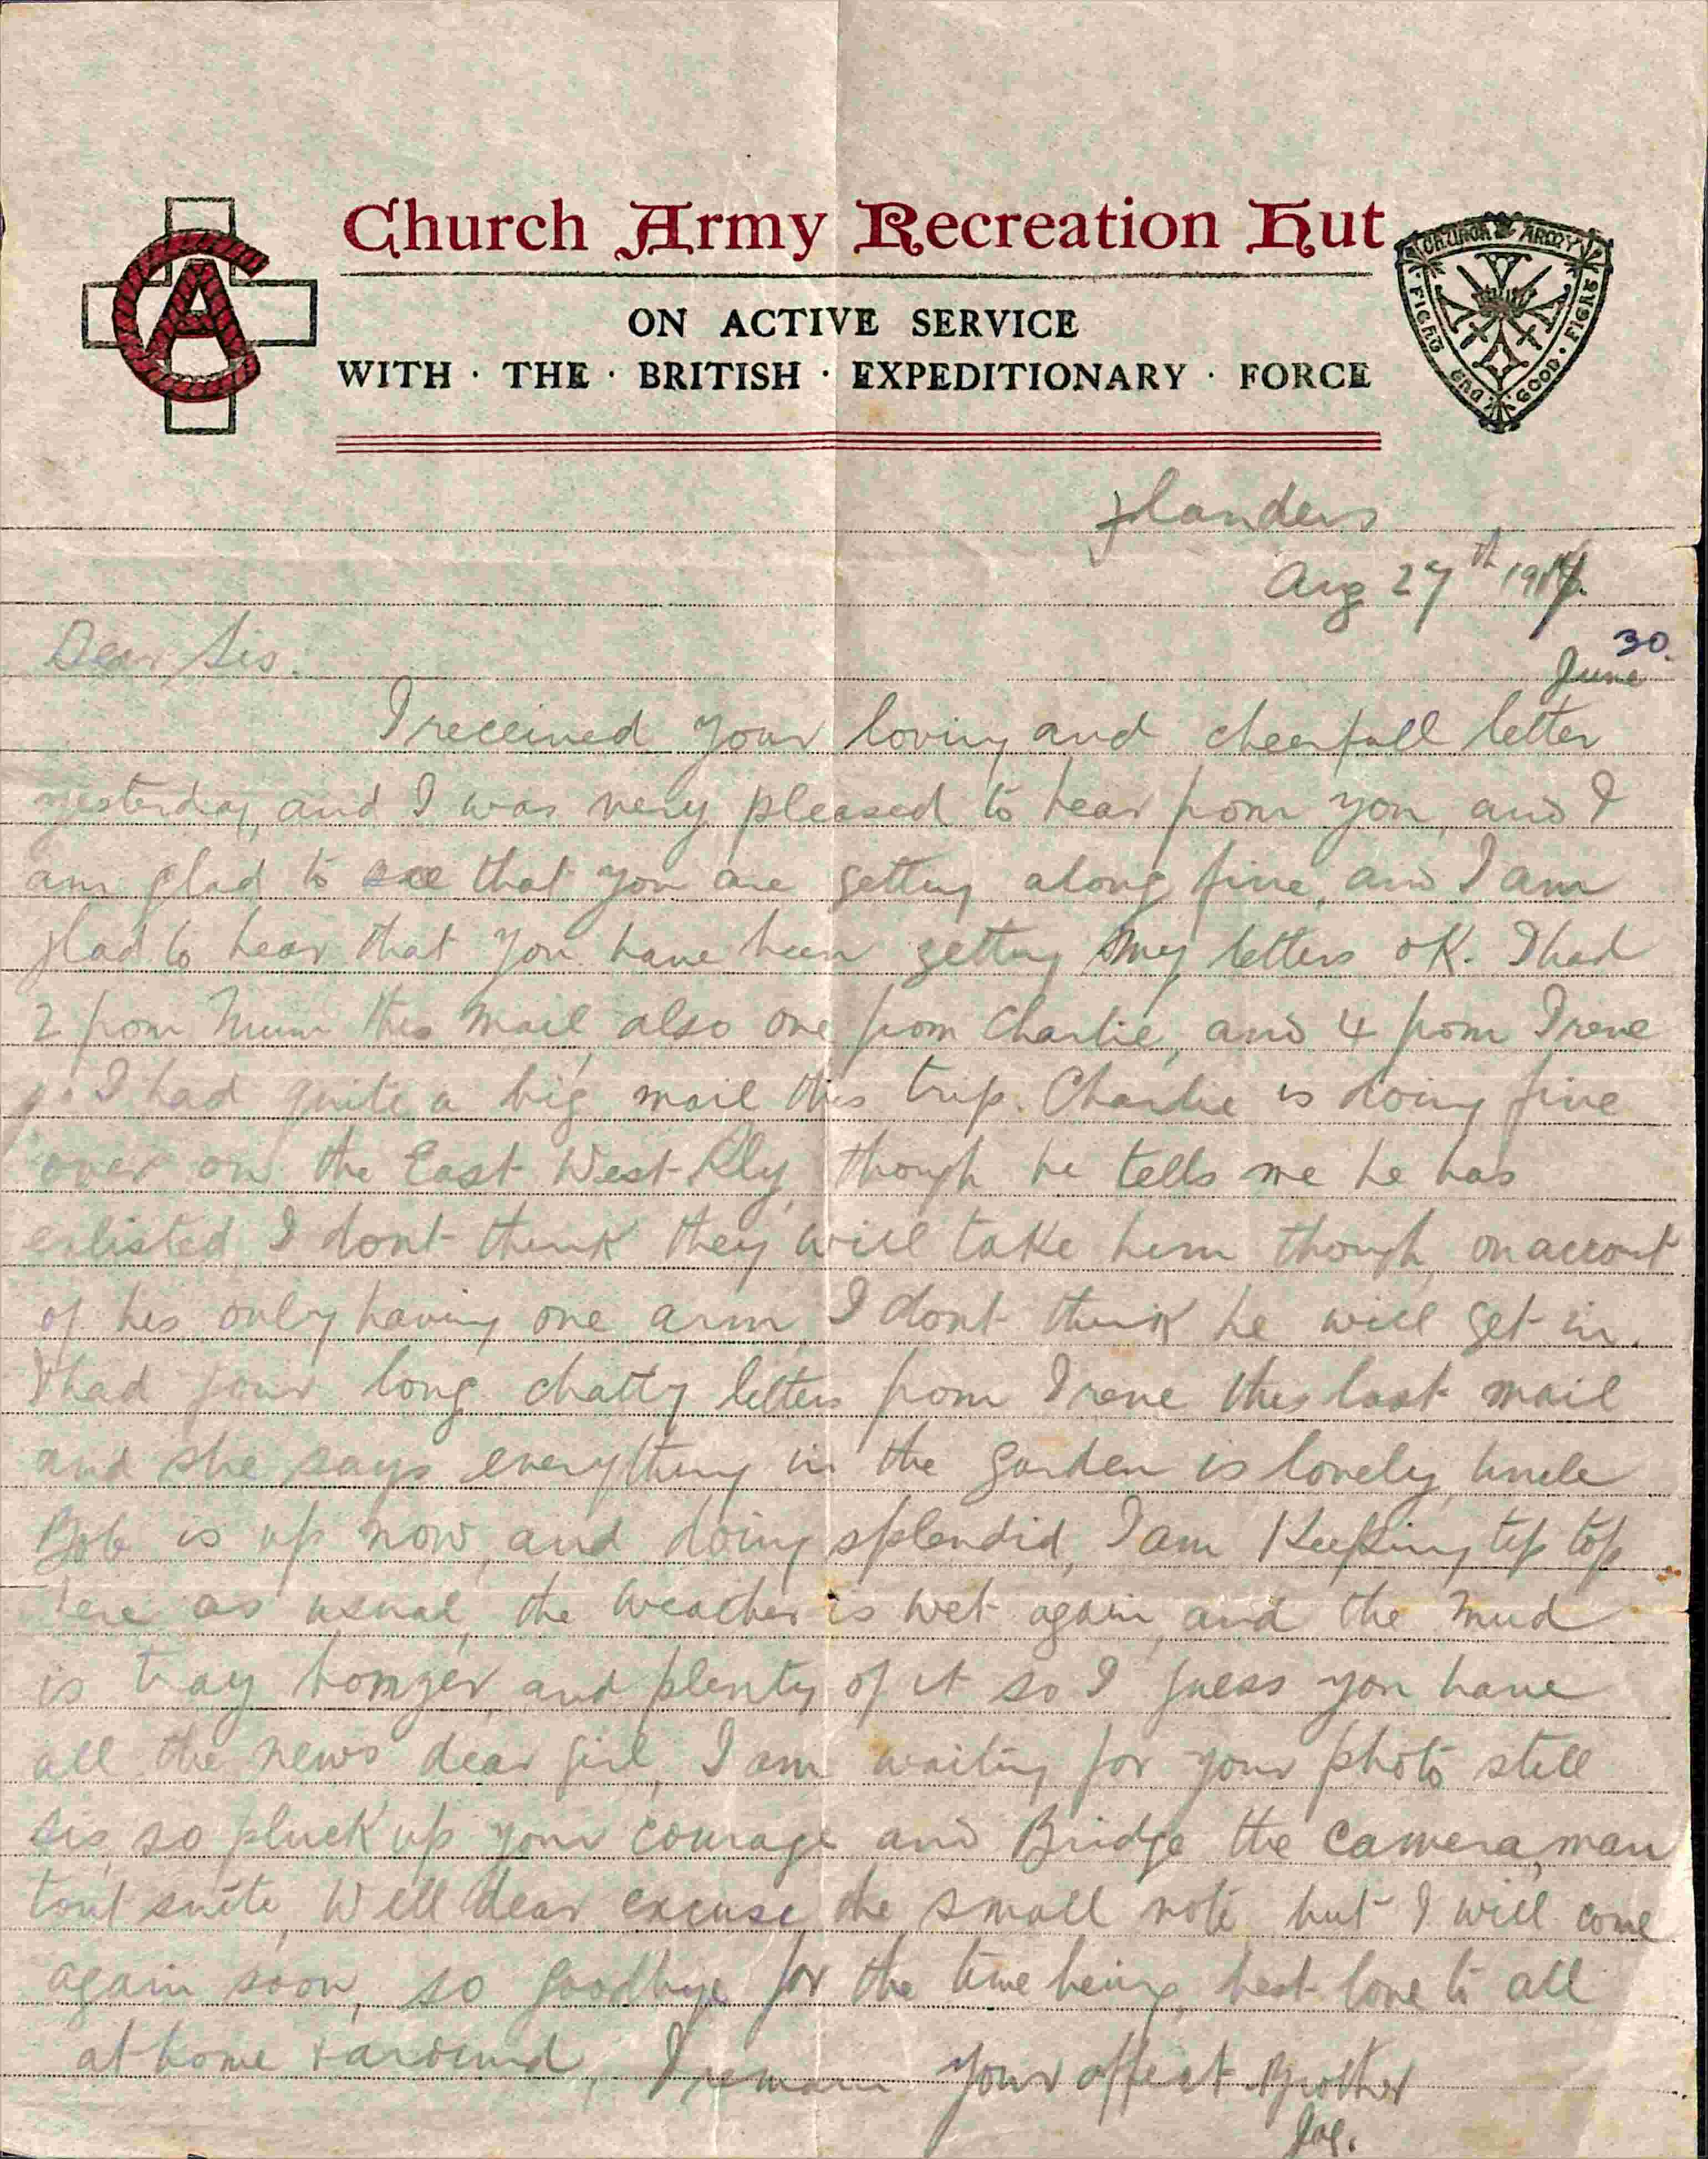 Church Army Recreation Hut
CA
CHURCH ARMY
FIGHT THE GOOD FIGHT
ON ACTIVE SERVICE
WITH · THE · BRITISH · EXPEDITIONARY · FORCE
Flanders
Aug 27th 1917.
30.
June
Dear Sis.
I received your loving and cheerfull letter
yesterday, and I was very pleased to hear from you, and I
am glad to see that you are getting along fine, and I am
glad to hear that you have been getting my letters OK. I had
2 from Mum this mail, also one from Charlie, and 4 from Irene
so I had quite a big mail this trip. Charlie is doing fine
over on the East-West Rly, though he tells me he has
enlisted I dont think they will take him though, on account
of his only having one arm, I dont think he will get in.
I had four long chatty letters from Irene this last mail
and she says everything in the garden is lovely, Uncle
Bob is up now, and doing splendid, I am Keeping tip top
here as usual, the weather is wet again, and the mud
is tray bonger, and plenty of it so I guess you have
all the news dear girl, I am waiting for your photo still
sis, so pluck up your courage and Bridge the camera, man
tout suite, Well dear excuse the small note but I will come
again soon, so goodbye for the time being, best love to all
at home & around, I remain Your affect Brother
Joe.